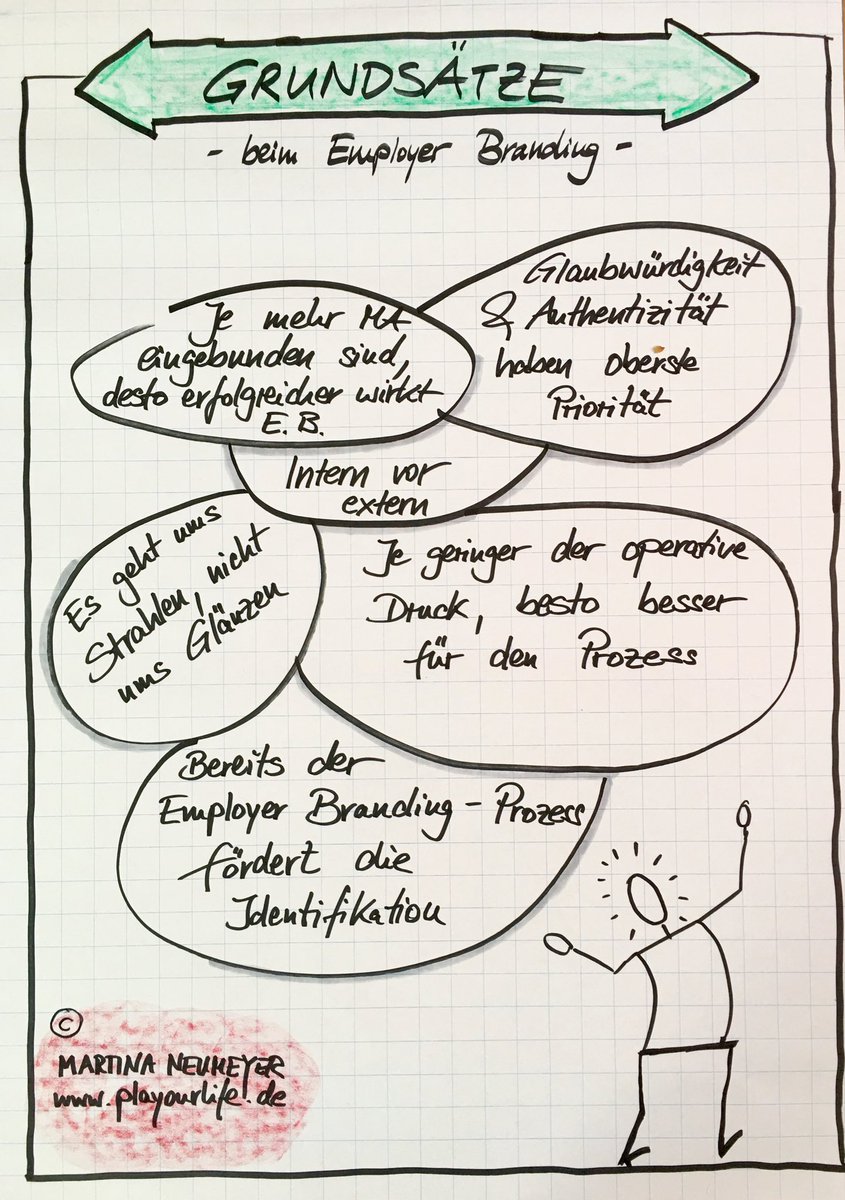 GRUNDSÄTZE
- beim Employer Branding -
Je mehr MA
eingebunden sind,
desto erfolgreicher wirkt
E.B.
Glaubwürdigkeit
& Authentizität
haben oberste
Priorität
Intern vor
extern
Es geht ums
Strahlen, nicht
ums Glänzen
Je geringer der operative
Druck, besto besser
für den Prozess
Bereits der
Employer Branding - Prozess
fördert die
Identifikation
©
MARTINA NEUMEYER
www.playourlife.de